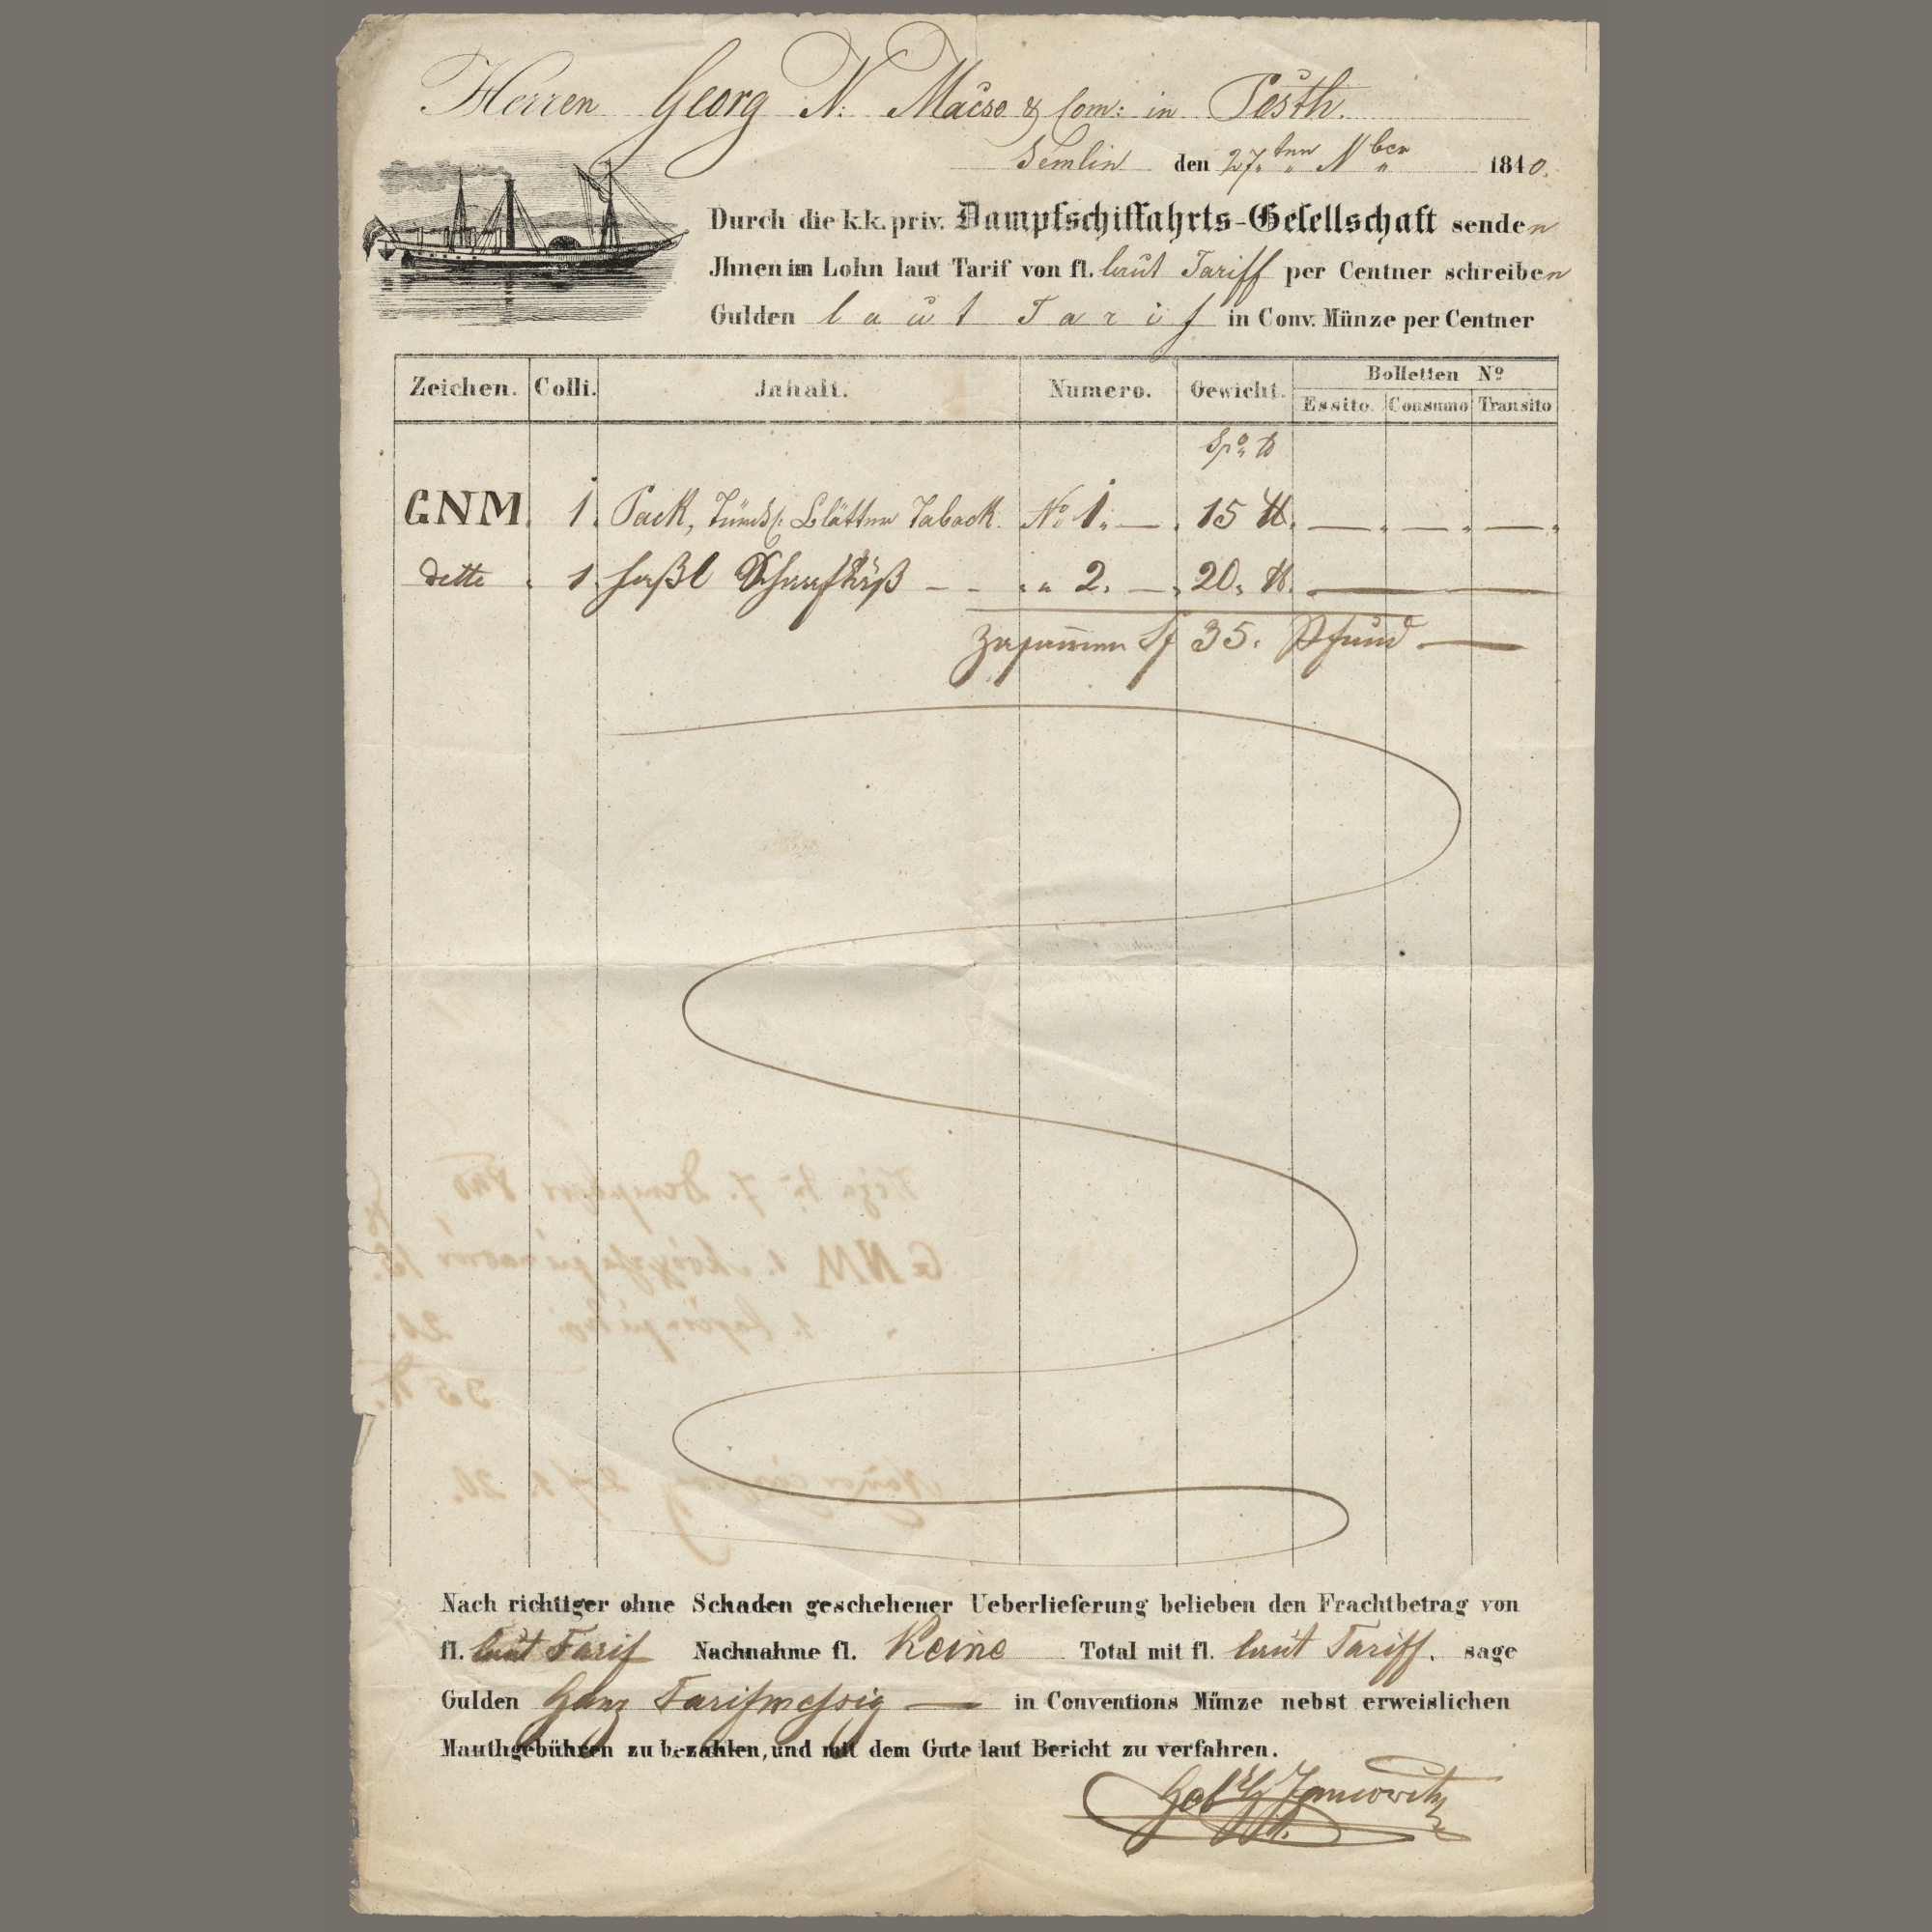 Herren Georg N. Macso & Com: in Pesth.
Semlin den 27ten Nber 1840.
Durch die k.k. priv. Dampfschiffahrts-Gesellschaft senden
Jhnen im Lohn laut Tarif von fl. laut Tariff per Centner schreiben
Gulden laut Tarif in Conv. Münze per Centner
Zeichen. Colli. Inhalt. Numero. Gewicht. Bolletten No
Essito. Consumo Transito
Spo ℔
GNM. 1. Pack, Blätter Taback. No 1. — 15 ℔. — — —
detto 1 faßl Schaafkäß - - „ 2. — 20. ℔. — —
Zusammen 35. Pfund —
Nach richtiger ohne Schaden geschehener Ueberlieferung belieben den Frachtbetrag von
fl. laut Tarif Nachnahme fl. Keine Total mit fl. laut Tariff. sage
Gulden Ganz Tarifmessig — in Conventions Münze nebst erweislichen
Mauthgebühren zu bezahlen, und mit dem Gute laut Bericht zu verfahren.